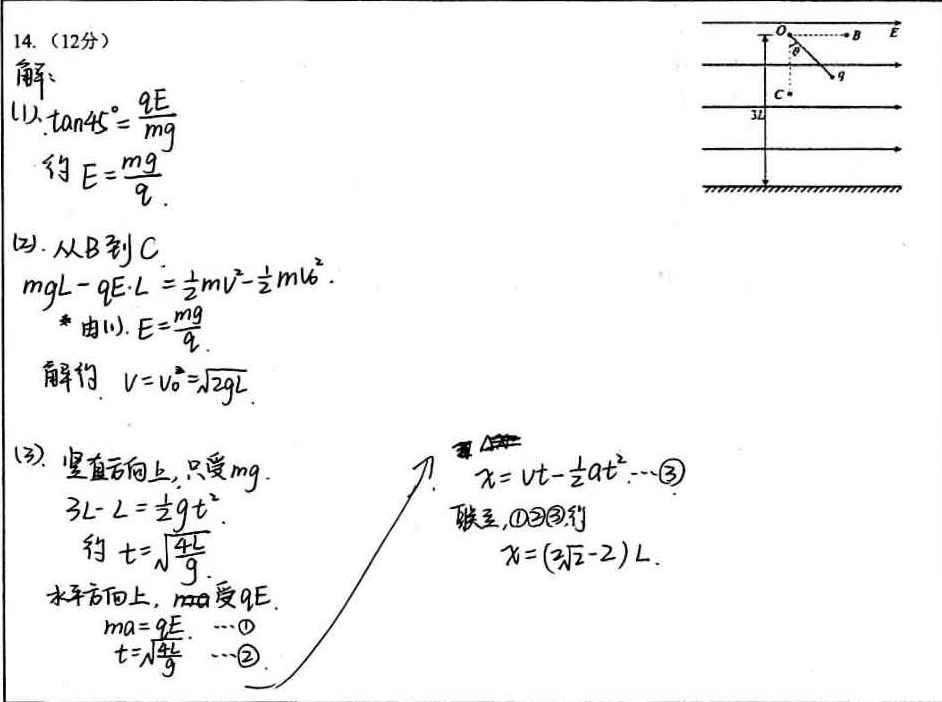 14. （12分）
解：
(1)、tan45°=qE/mg
得 E=mg/q.
(2). 从B到C.
mgL-qE·L=½mv²-½mv₀².
由(1). E=mg/q.
解得 v=v₀=√2gL.
(3). 竖直方向上,只受mg.
3L-L=½gt².
得 t=√(4L/g).
水平方向上, 受qE.
ma=qE. …①
t=√(4L/g) …②.
x=vt-½at²…③
联立,①②③得
x=(2√2-2)L.
O
B
E
θ
q
C
3L